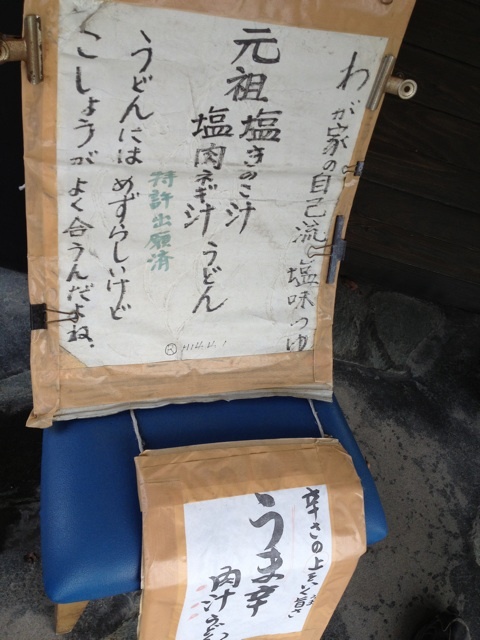 わが家の自己流塩味つゆ
元祖塩きのこ汁
塩肉ネギ汁うどん
特許出願済
うどんにはめずらしいけど
こしょうがよく合うんだよね。
辛さの上をいく旨さ
うま辛
肉汁うどん